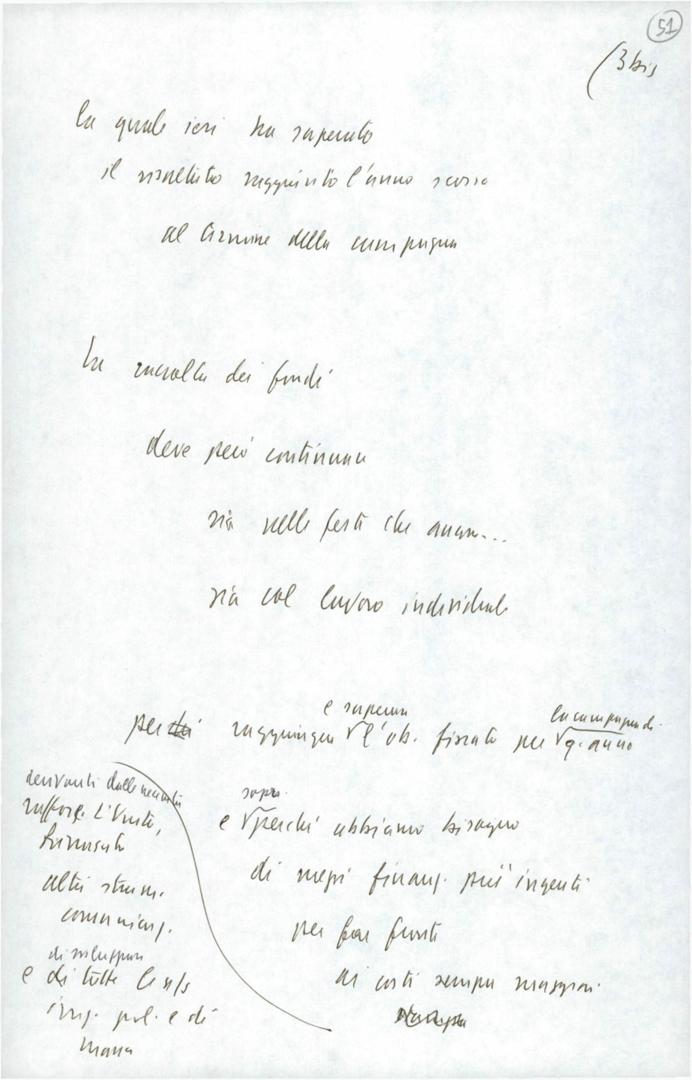 51
(3 bis
la quale ieri ha superato
il risultato raggiunto l'anno scorso
al termine della campagna
La raccolta dei fondi
deve però continuare
sia nelle feste che ancora...
sia col lavoro individuale
e superare la campagna di
per raggiungere l'ob. fissato per q. anno
derivanti dalle necessità
sopra.
rafforz. L'Unità, e perché abbiamo bisogno
Rinascita
altri strum. di mezzi finanz. più ingenti
comunicaz. per far fronte
di sviluppare
e di tutte le ns ai costi sempre maggiori
iniz. pol. e di
massa